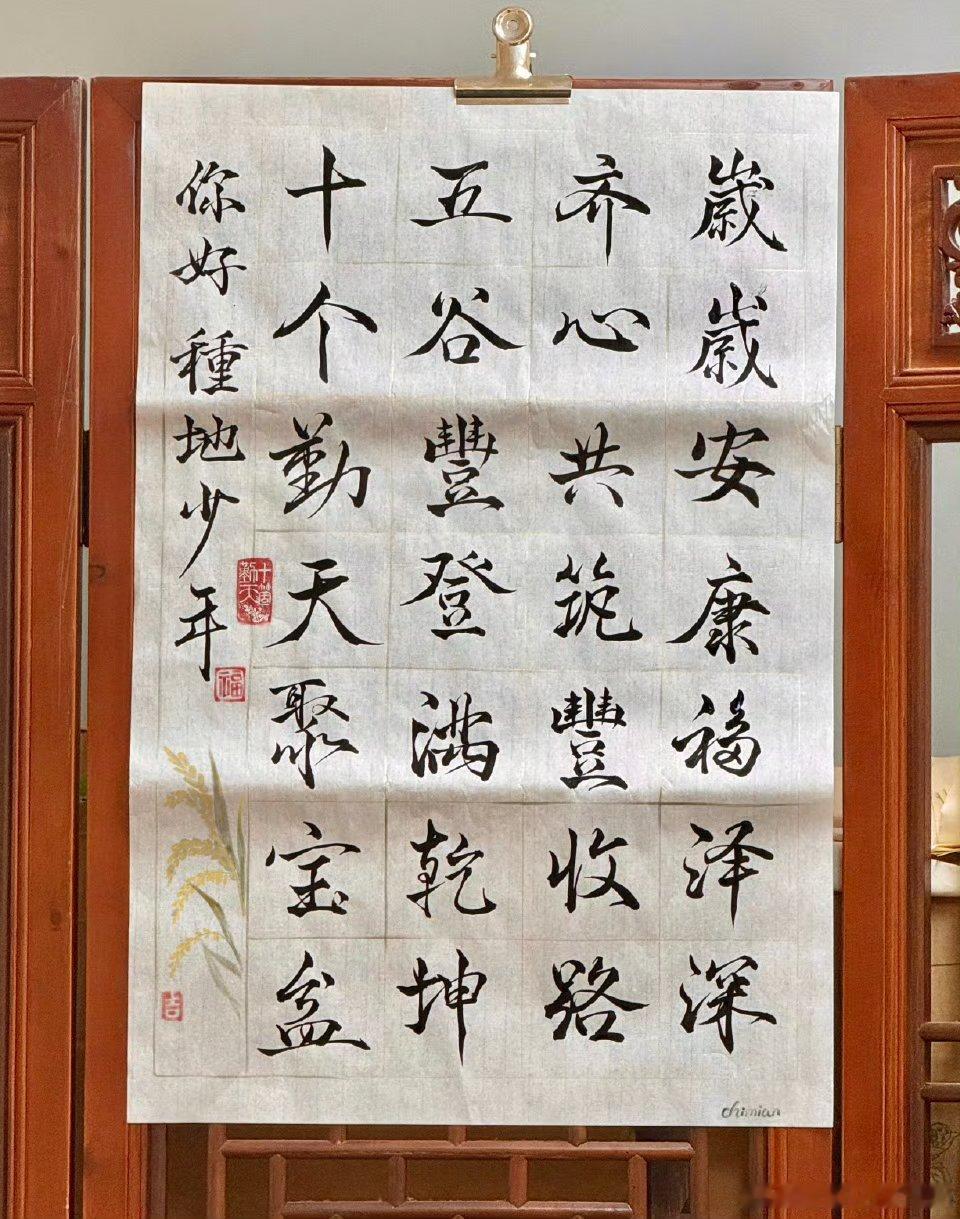 歲歲安康福泽深
齐心共筑豐收路
五谷豐登满乾坤
十个勤天聚宝盆
你好種地少年
十個勤天
福
吉
chimian